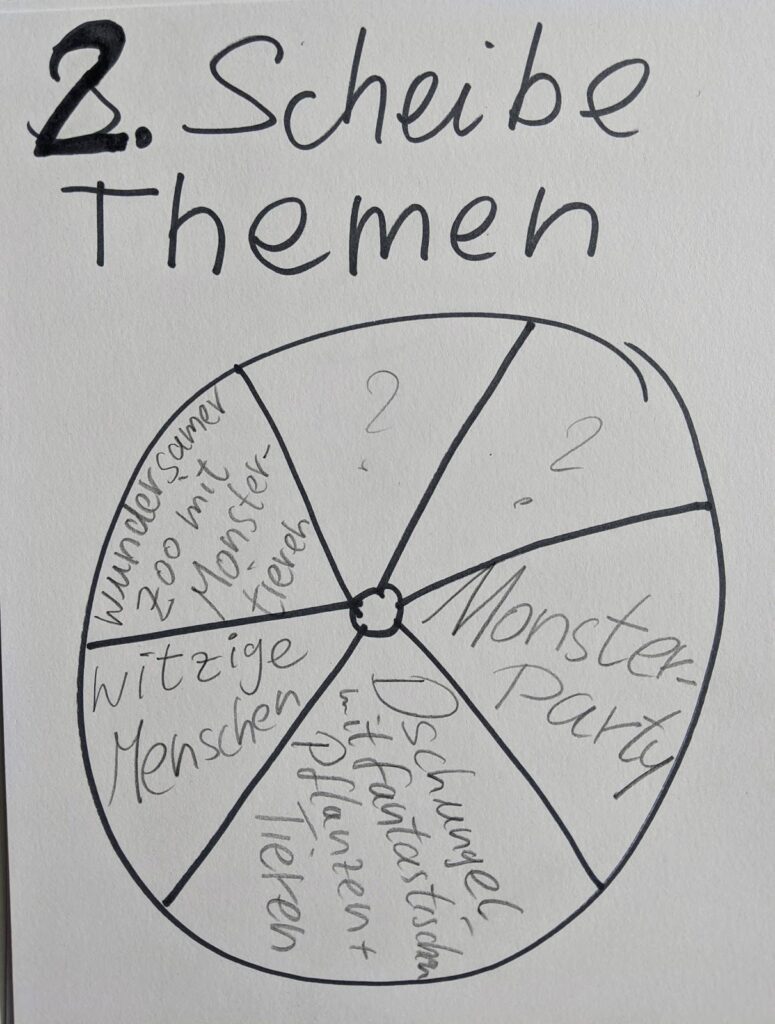 2. Scheibe
Themen
?
?
Monster-
party
Dschungel
mit fantastischen
Pflanzen +
Tieren
witzige
Menschen
wundersamer
Zoo mit
Monster-
tieren